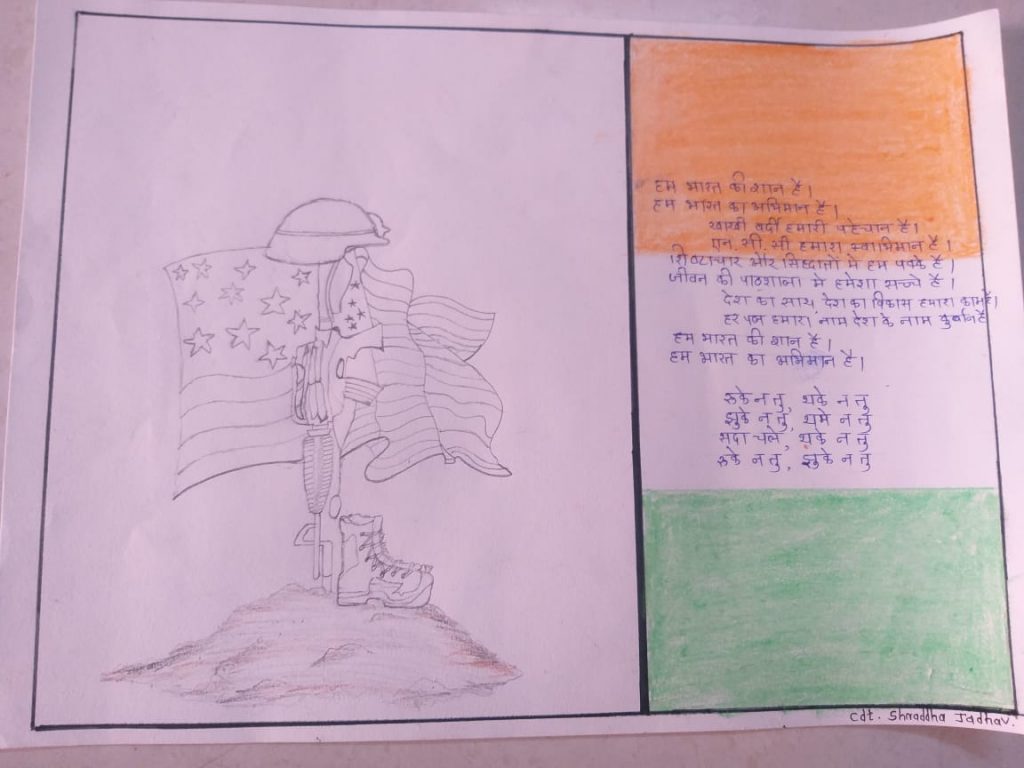 हम भारत की शान है।
हम भारत का अभिमान है।
खाखी वर्दी हमारी पहेचान है।
एन. सी. सी हमारा स्वाभिमान है।
शिष्टाचार और सिद्धातों मे हम पक्के है।
जीवन की पाठशाला मे हमेशा सच्चे है।
देश का साथ देश का विकास हमारा काम है।
हर पल हमारा नाम देश के नाम कुर्बान है
हम भारत की शान है।
हम भारत का अभिमान है।
रुके न तु, थके न तू
झुके न तु, थमे न तु
सदा चले, थके न तु
रुके न तु, झुके न तु
Cdt. Shraddha Jadhav.